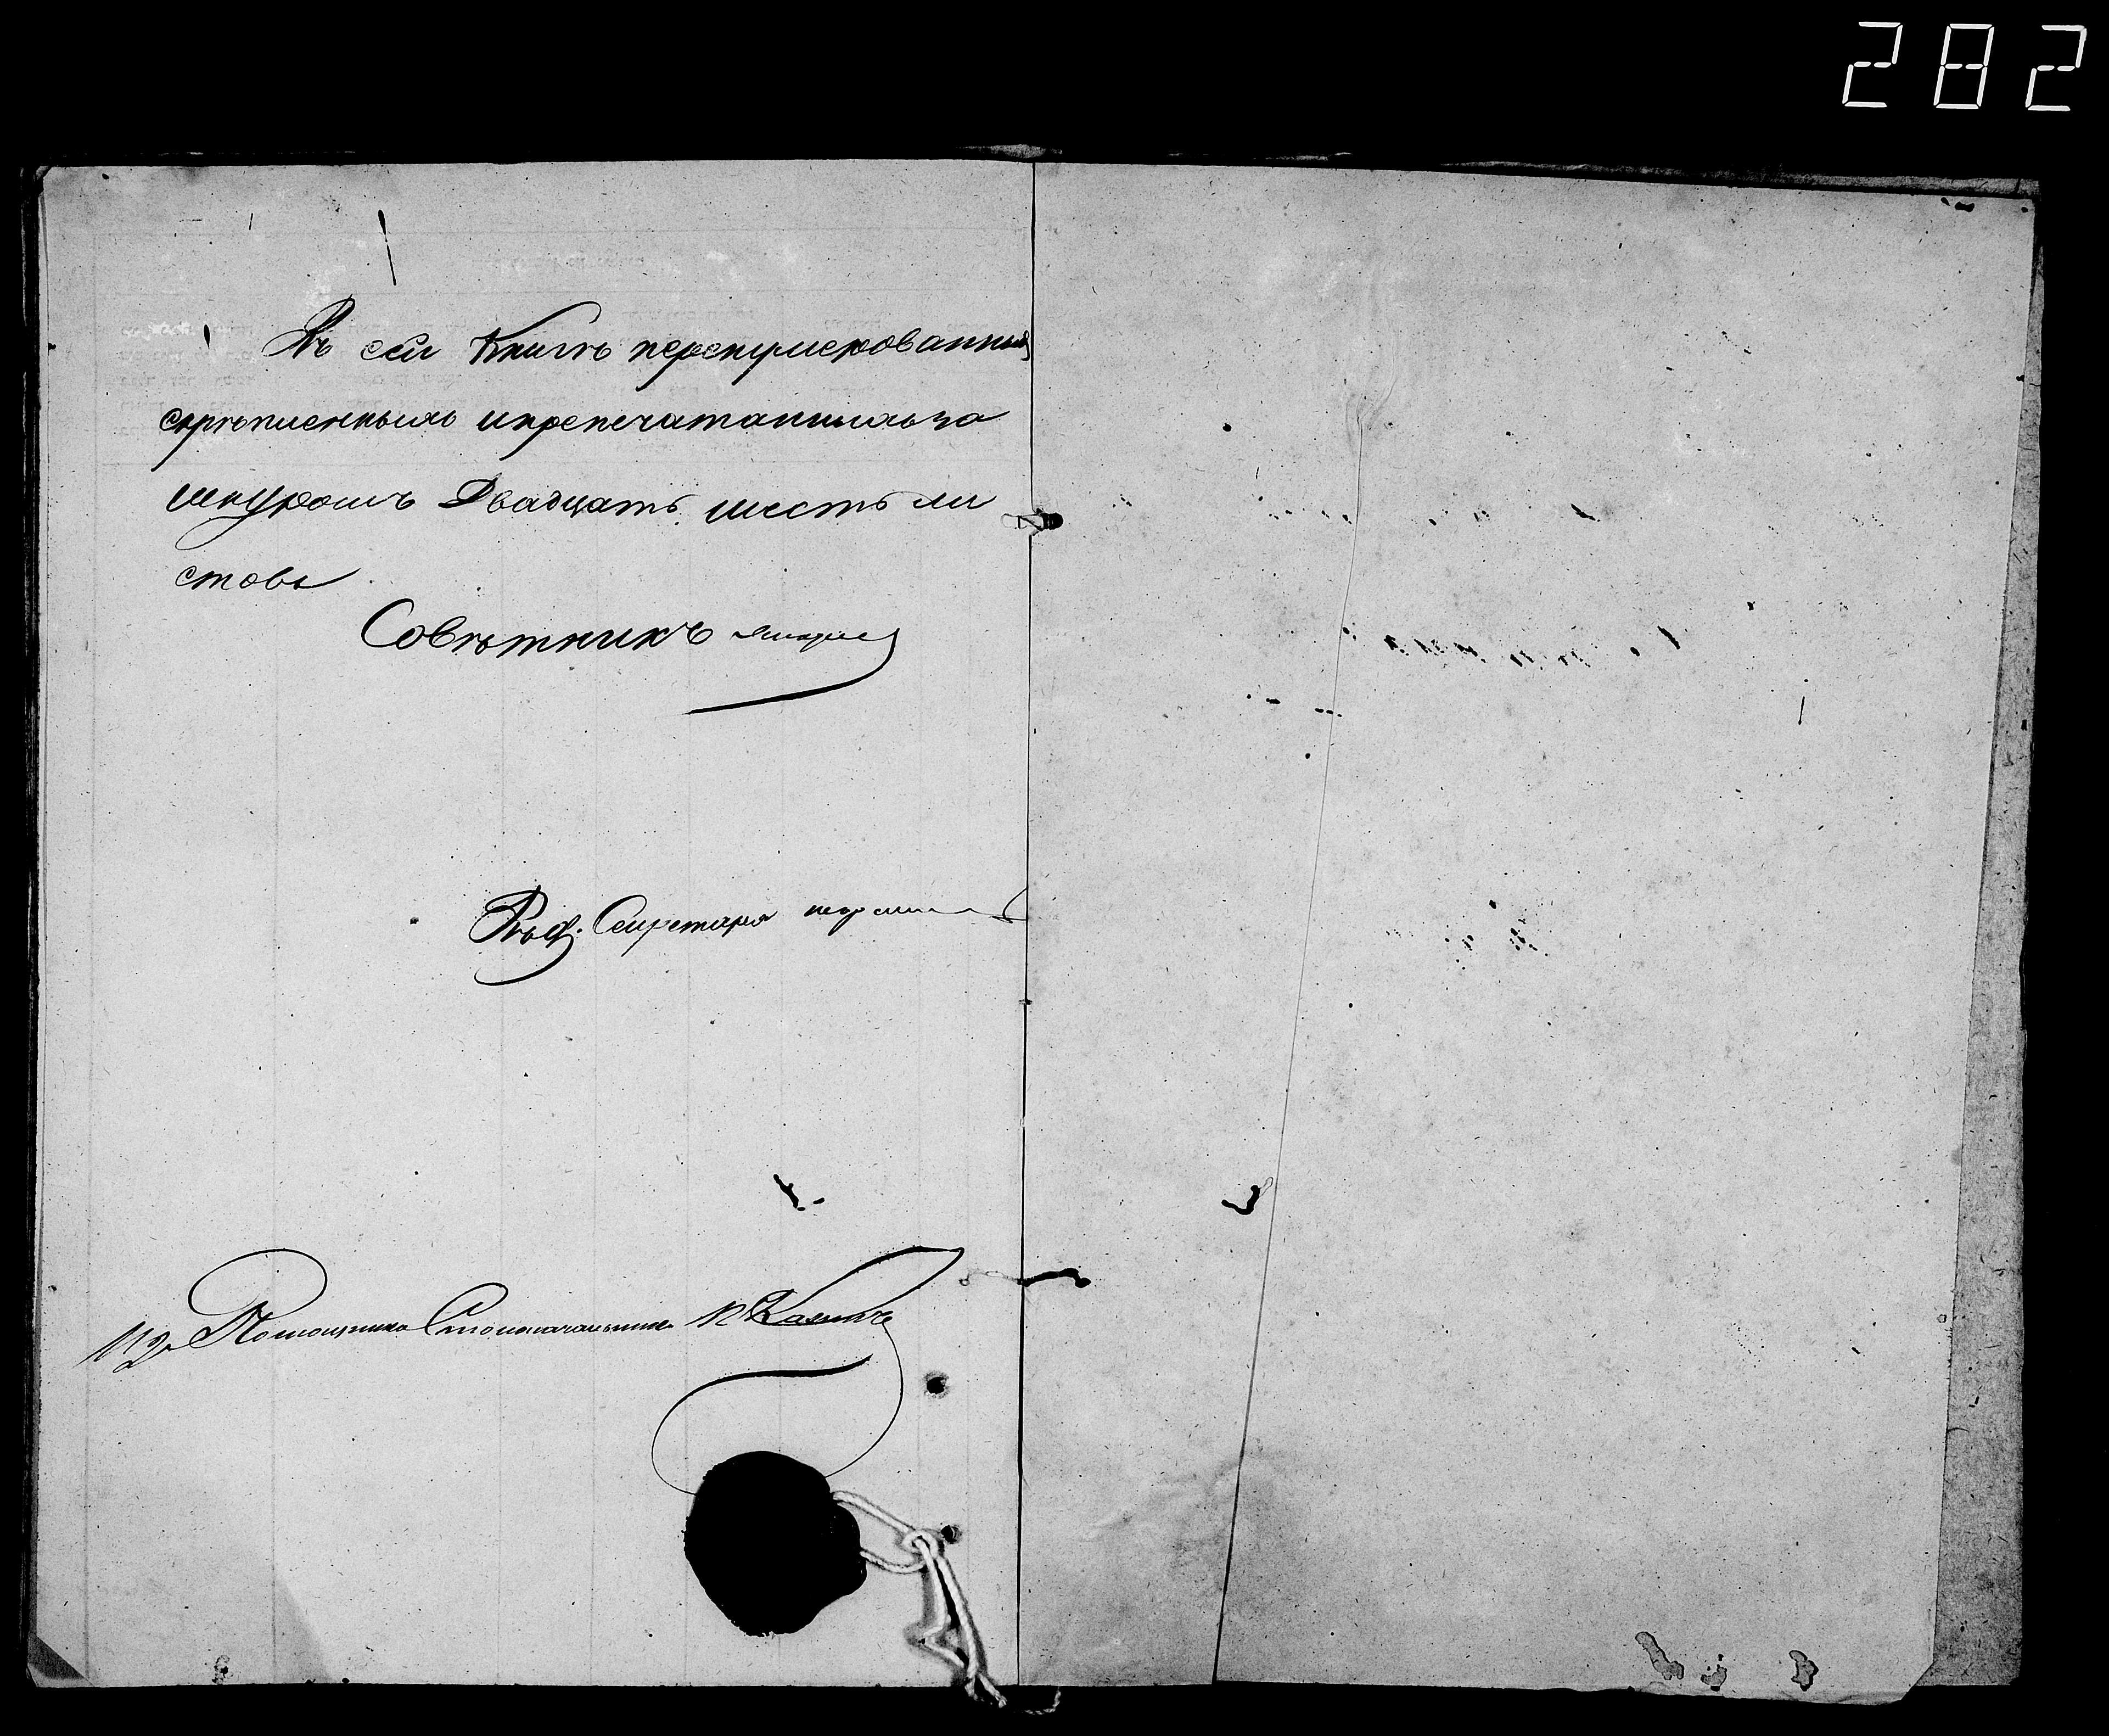 282
Въ сей Книгѣ перенумерованныхъ
скрѣпленныхъ и препечатанныхъ за
шнуромъ Двадцать шесть ли
стовъ
Совѣтникъ
Секретарь
Помощника Столоначальника